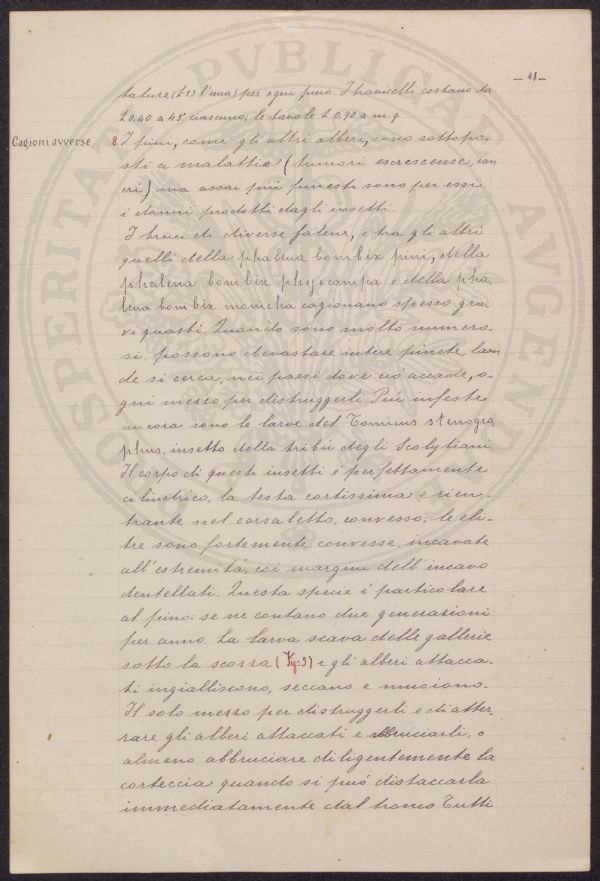 — 48 —
tature (£ 13 l'una) per ogni pino. I travicelli costano da
£ 0,40 a 45 ciascuno; le tavole £ 0.90 a m. q.
Cagioni avverse
8. I pini, come gli altri alberi, sono sottopo-
sti a malattie (tumori escrescense, can
cri) ma assai più funesti sono per essi
i danni prodotti dagli insetti.
I bruci di diverse falene, e tra gli altri
quelli della phalena bombix pini, della
phalena bombix phyocampa e della pha-
lena bombix monicha cagionano spesso gra-
vi guasti. Quando sono molto numero-
si, possono devastare intere pinete, laon
de si cerca, nei paesi dove ciò accade, o-
gni mezzo per distruggerli. Più infeste
ancora sono le larve del Tomicus stenogra
phus, insetto della tribù degli Scolytiani.
Il corpo di questi insetti è perfettamente
cilindrico, la testa cortissima e rien-
trante nel corsaletto, convesso; le eli-
tre sono fortemente convesse incavate
all'estremità, coi margini dell'incavo
dentellati. Questa specie è particolare
al pino: se ne contano due generazioni
per anno. La larva scava delle gallerie
sotto la scorza (Fig: 5) e gli alberi attacca-
ti ingialliscono, seccano e muoiono.
Il solo mezzo per distruggerli e di atter
rare gli alberi attaccati e abbruciarli, o
almeno abbruciare diligentemente la
corteccia quando si può distaccarla
immediatamente dal tronco Tutti
PROSPERITATI PVBLICAE AVGENDAE